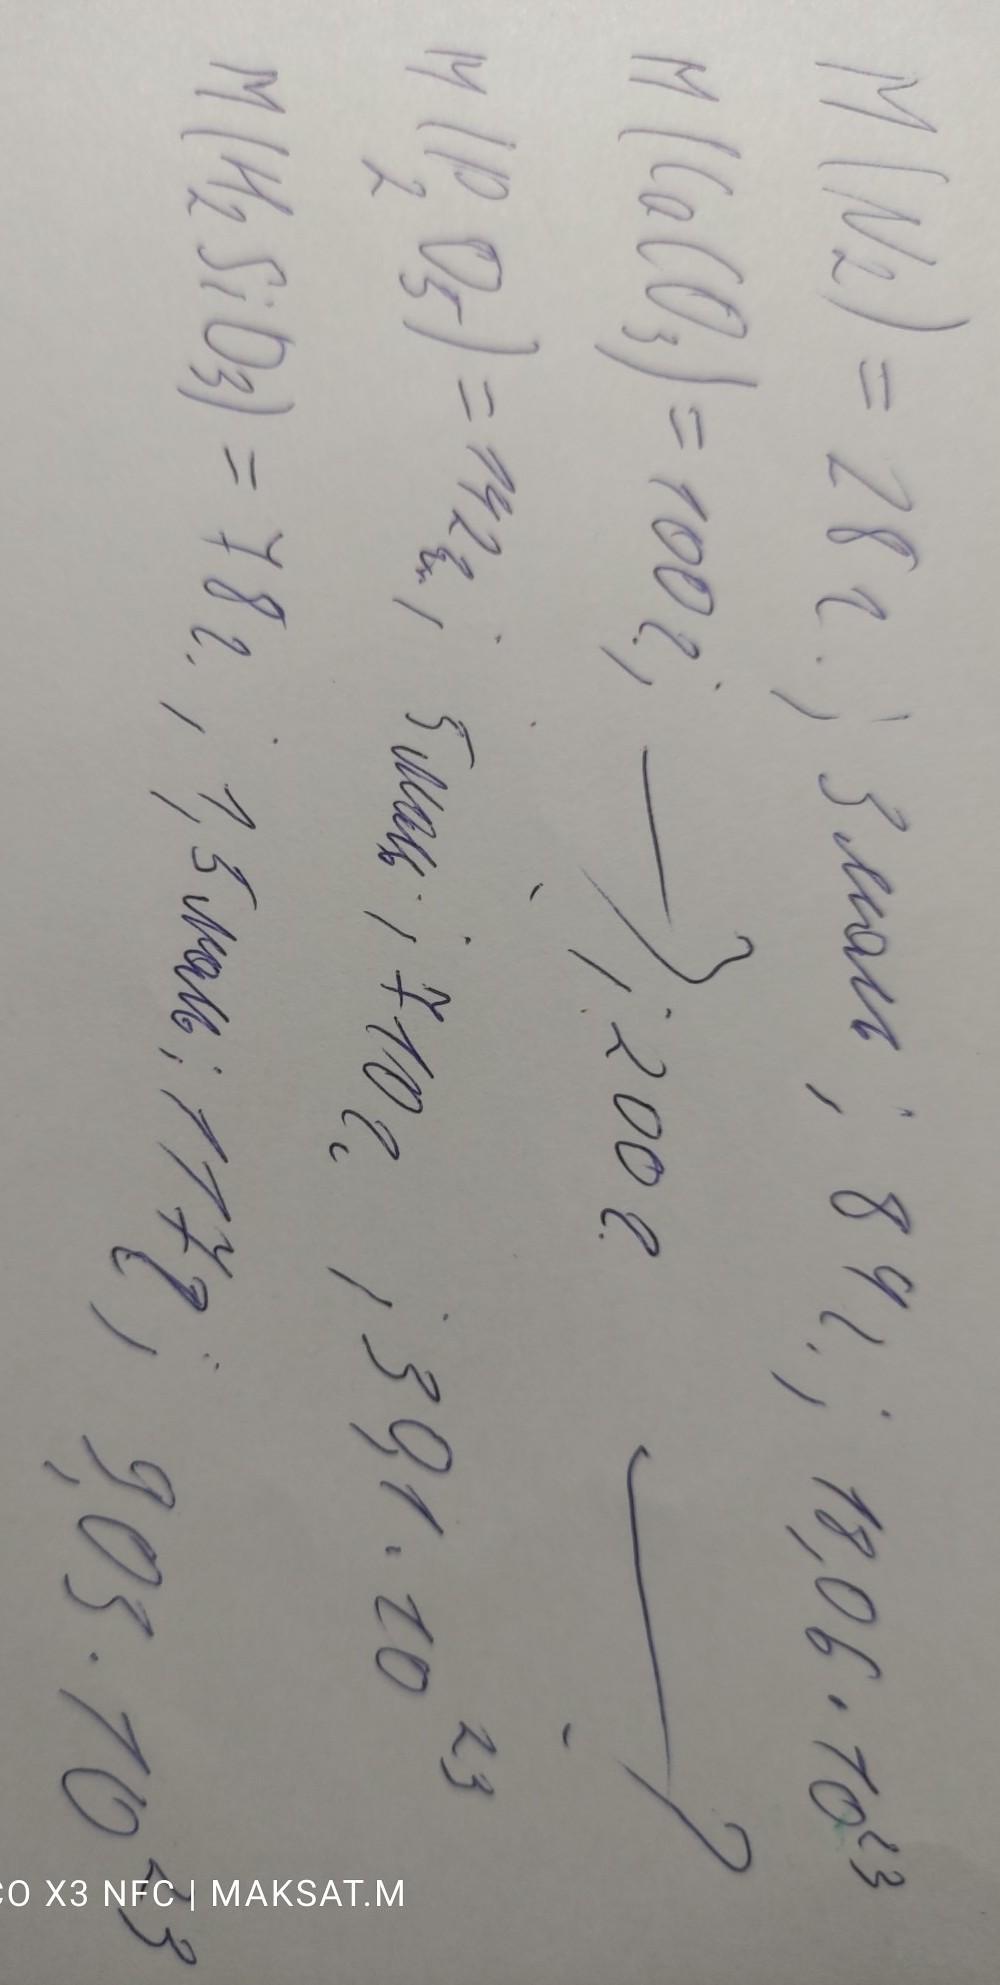 M(N₂) = 28 г.; 3 моль; 84 г.; 18,06 · 10²³
M(CaCO₃) = 100 г; — ; 200 г —
M(P₂O₅) = 142 г; 5 моль; 710 г; 30,1 · 10²³
M(H₂SiO₃) = 78 г.; 1,5 моль; 117 г; 9,03 · 10²³
CO X3 NFC | MAKSAT.M